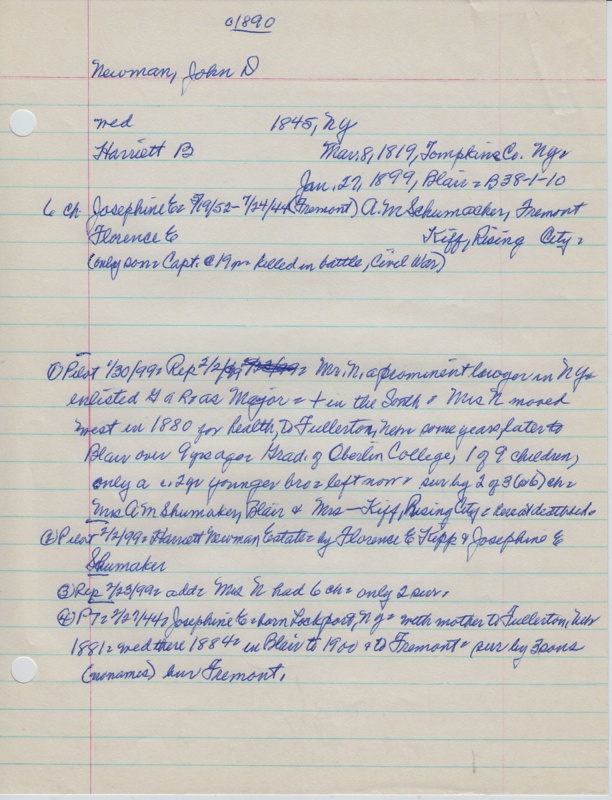 c1890
Newman, John D
wed 1845, NY
Harriett B Mar. 8, 1819, Tompkins Co. NY=
Jan. 27, 1899, Blair = B38-1-10
6 ch Josephine E= /19/52 - 7/24/44 (Fremont) A. M Schumacher, Fremont
Florence E Kiff, Rising City=
(only son= Capt. @ 19 m= killed in battle, Civil War)
① Pilot 1/30/99= Rep 2/2/ = Mr. N, a prominent lawyer in NY=
enlisted G a R= as Major = + in the South = Mrs N moved
west in 1880 for health, to Fullerton, Neb= some years later to
Blair over 9 yrs ago= Grad. of Oberlin College, 1 of 9 children,
only a 2yr younger bro= left now = sur by 2 of 3 (or 6) ch=
Mrs A. M Shumaker, Blair & Mrs — Kiff, Rising City =
② Pilot 2/2/99= Harriett Newman Estate= by Florence E Kipp & Josephine E
Shumaker
③ Rep 2/23/99= add= Mrs N had 6 ch= only 2 sur.
④ PT= 2/27/44= Josephine E= born Lockport, NY= with mother to Fullerton, Neb
1881= wed there 1884= in Blair to 1900 & to Fremont= sur by 3 sons
(no names) bur Fremont.